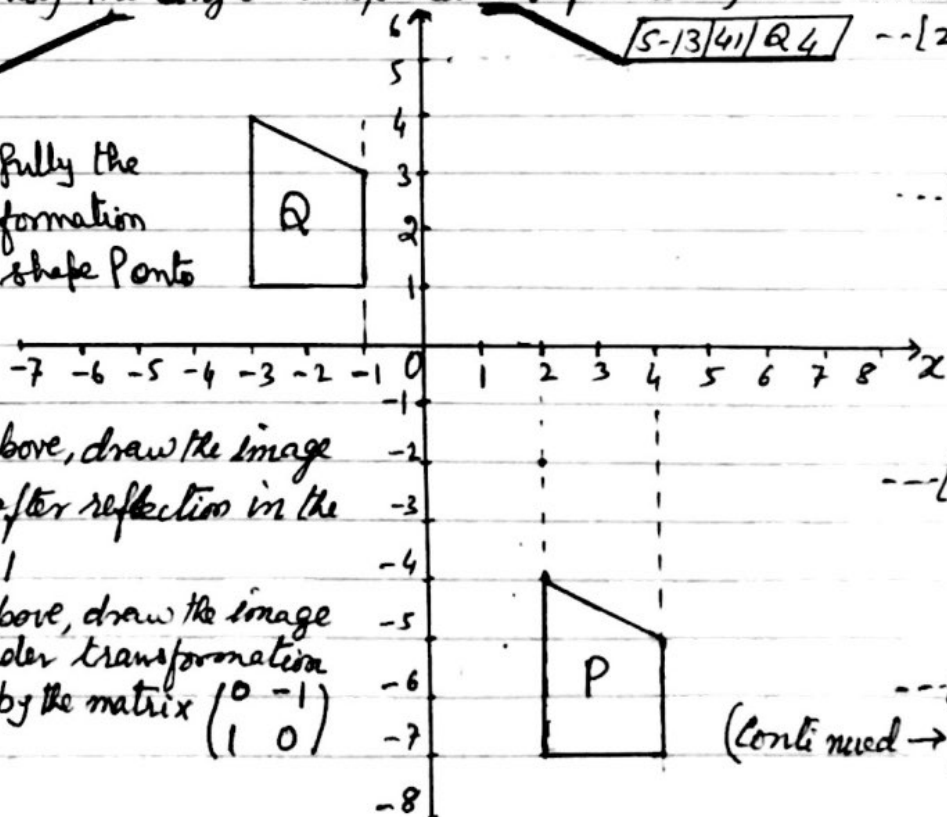 6
S-13 41 Q4 --[2
5
4
fully the
3
formation
Q
2
shape P onto
1
-7 -6 -5 -4 -3 -2 -1 0 1 2 3 4 5 6 7 8 x
-1
bove, draw the image
-2
---[
fter reflection in the
-3
1
-4
bove, draw the image
-5
der transformation
P
-6
by the matrix (0 -1
1 0)
-7
(Conti nued →
-8